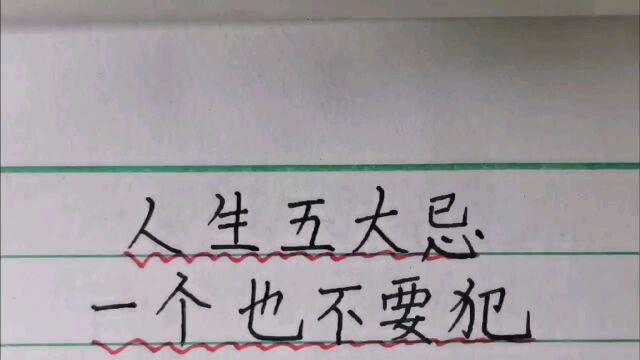 人生五大忌
一个也不要犯